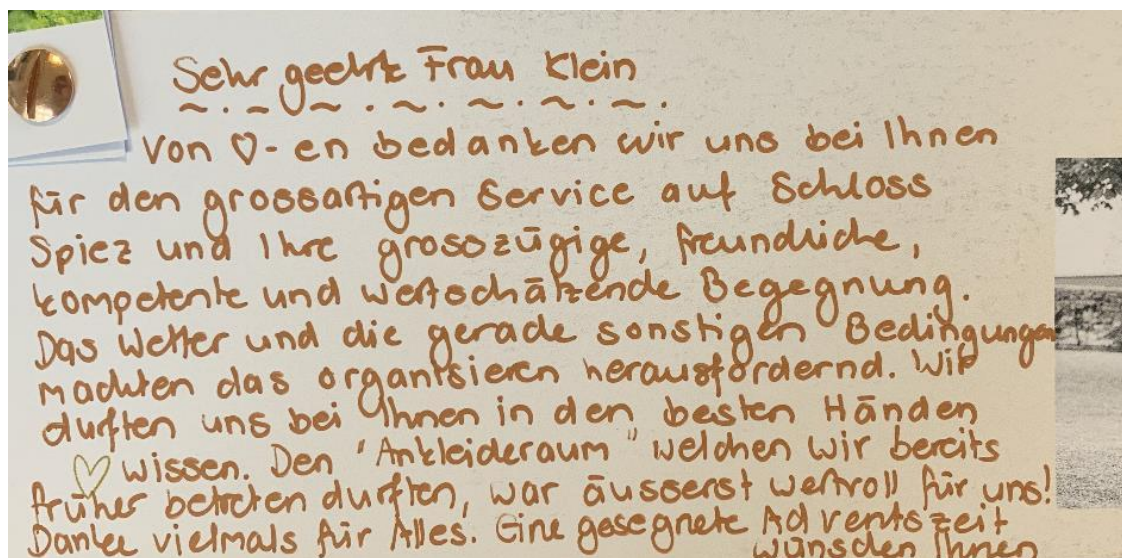 Sehr geehrte Frau Klein
Von ♡-en bedanken wir uns bei Ihnen
für den grossartigen Service auf Schloss
Spiez und Ihre grosszügige, freundliche,
kompetente und wertschätzende Begegnung.
Das Wetter und die gerade sonstigen Bedingungen
machten das organisieren herausfordernd. Wir
durften uns bei Ihnen in den besten Händen
♡ wissen. Den "Ankleideraum" welchen wir bereits
früher betreten durften, war äusserst wertvoll für uns!
Danke vielmals für Alles. Eine gesegnete Adventszeit
wünschen Ihnen